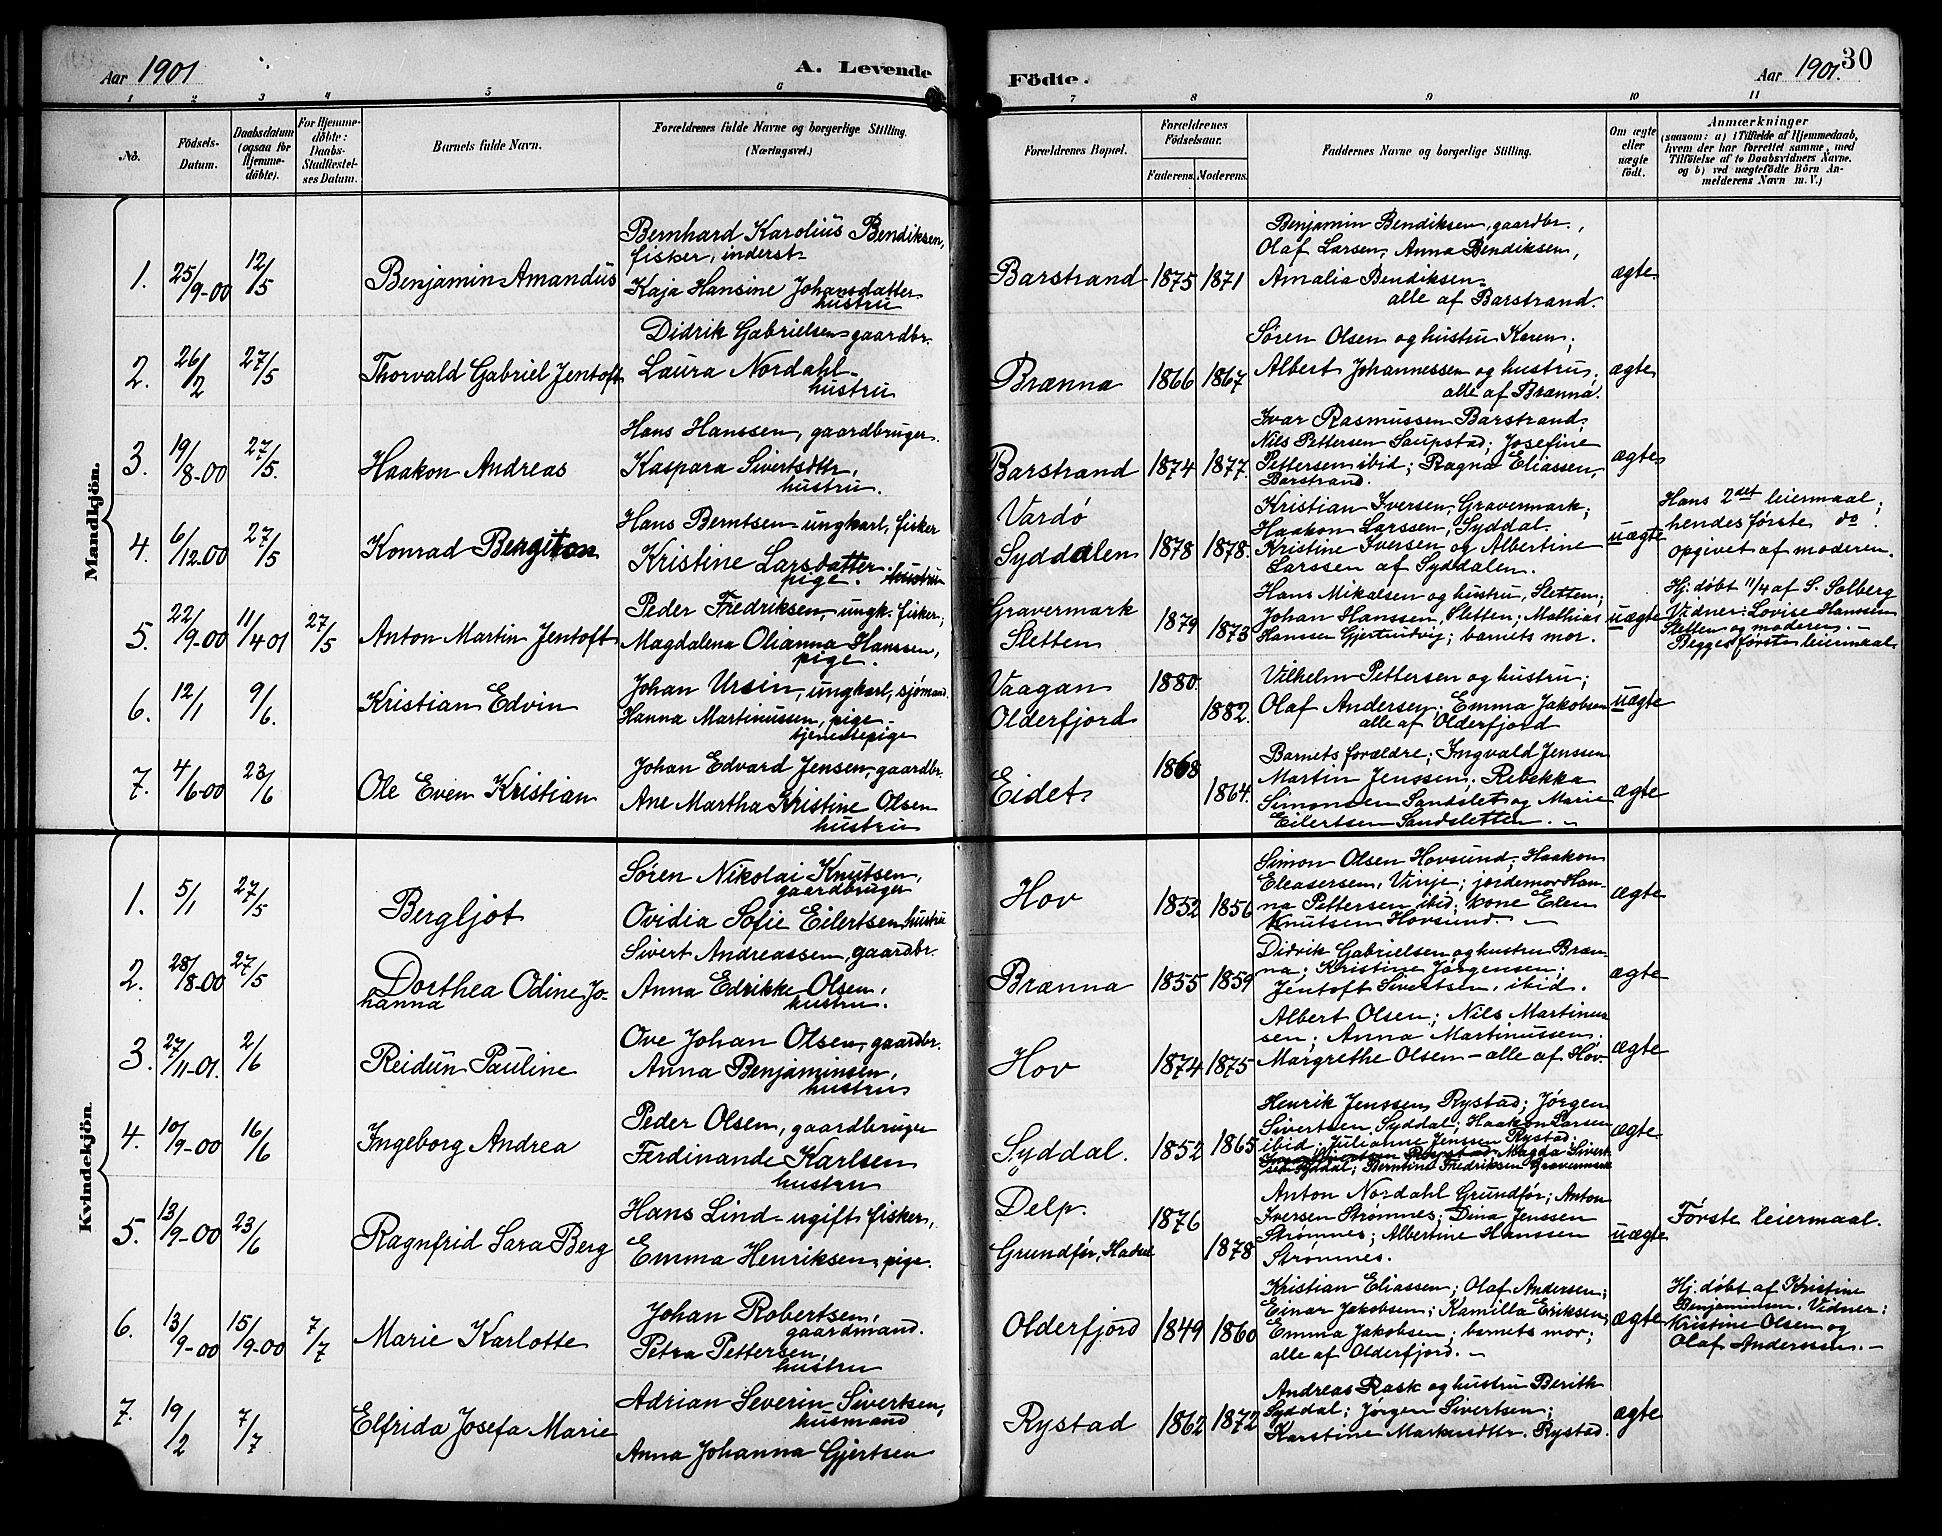 Aar 1901
A. Levende
Födte.
Aar 1901.
30
1 2 3 4 5 6 7 8 9 10 11
No.
Födsels-
Datum.
Daabsdatum
(ogsaa for
Hjemme-
döbte).
For Hjemme-
döbte:
Daabs-
Stadfæstel-
ses Datum.
Barnets fulde Navn.
Forældrenes fulde Navne og borgerlige Stilling.
(Næringsvei.)
Forældrenes Bopæl.
Forældrenes
Födselsaar.
Faderens. Moderens.
Faddernes Navne og borgerlige Stilling.
Om ægte
eller
uægte
födt.
Anmærkninger
(saasom: a) i Tilfælde af Hjemmedaab,
hvem der har forrettet samme, med
Tilföielse af to Daabsvidners Navne.
og b) ved uægtefödte Börn An-
melderens Navn m. V.)
Mandkjön.
1. 25/9-00 12/5 Benjamin Amandus
Bernhard Karolius Bendiksen,
fisker, inderst
Kaja Hansine Johansdatter
hustru
Barstrand 1875 1871
Benjamin Bendiksen, gaardbr.,
Olaf Larsen, Anna Bendiksen,
Amalia Bendiksen
alle af Barstrand.
ægte
2. 26/2 27/5 Thorvald Gabriel Jentoft
Didrik Gabrielsen gaardbr.
Laura Nordahl
hustru
Brænna 1866 1867
Søren Olsen og hustru Karen;
Albert Johannessen og hustru,
alle af Brænna.
ægte
3. 19/8-00 27/5. Haakon Andreas
Hans Hanssen, gaardbruger.
Kaspara Sivertsdtr,
hustru.
Barstrand 1874 1877.
Ivar Rasmussen Barstrand.
Nils Pettersen Saupstad; Josefine
Pettersen ibid; Ragna Eliassen,
Barstrand.
ægte
4. 6/12.00 27/5 Konrad Bergiton
Hans Berntsen ungkarl, fisker
Kristine Larsdatter.
pige. hustru
Vardö
Syddalen 1878 1878.
Kristian Iversen, Gravermark;
Haakon Larssen, Syddal.
Kristine Iversen og Albertine
Larssen af Syddalen.
uægte
Hans 2det leiermaal;
hendes første do.
opgivet af moderen.
5. 22/9-00 11/4 01 27/5 Anton Martin Jentoft
Peder Fredriksen, ungk. fisker,
Magdalena Olianna Hanssen,
pige.
Gravermark
Sletten 1879 1873
Hans Mikalsen og hustru, Sletten;
Johan Hanssen, Sletten; Mathias
Hanssen Gjertrudvig; barnets mor.
uægte
Hj. døbt 11/4 af S. Solberg
Vidner: Lovise Hanssen
Sletten og moderen. -
Begges første leiermaal.
6. 12/1 9/6. Kristian Edvin
Johan Ursin, ungkarl, sjømand.
Hanna Martinussen, pige
tjenestepige
Vaagan
Olderfjord 1880. 1882.
Vilhelm Pettersen og hustru;
Olaf Andersen. Emma Jakobsen
alle af Olderfjord
uægte
7. 4/6-00 23/6 Ole Even Kristian
Johan Edvard Jensen, gaardbr.
Ane Martha Kristine Olsen
hustru
Eidet. 1868 1864.
Barnets forældre; Ingvald Jenssen
Martin Jenssen; Rebekka
Simonsen Sandslet og Marie
Eilertsen Sandsletten.
ægte
Kvindekjön.
1. 5/1 27/5 Bergljot
Søren Nikolai Knutsen,
gaardbruger
Ovidia Sofie Eilertsen hustru
Hov 1852 1856
Simon Olsen Hovsund, Haakon
Eleasersen, Vinje; jordemor Han-
na Pettersen ibid; kone Elen
Knutsen Hovsund.
ægte
2. 28/8-00 27/5 Dorthea Odine Jo-
hanna
Sivert Andreassen, gaardbr.
Anna Edrikke Olsen,
hustru.
Brænna 1855 1859
Didrik Gabrielsen og hustru Bræn-
na; Kristine Jørgensen;
Jentoft Sivertsen, ibid.
ægte
3. 27/11-01. 2/6 Reidun Pauline
Ove Johan Olsen, gaardbr.
Anna Benjaminsen,
hustru
Hov 1874 1875
Albert Olsen; Nils Martinus
sen; Anna Martinussen;
Margrethe Olsen - alle af Hov
ægte
4. 10/9-00 16/6 Ingeborg Andrea
Peder Olsen, gaardbruger
Ferdinande Karlsen
hustru
Syddal. 1852 1865
Henrik Jenssen Rystad; Jørgen
Sivertsen, Syddal; Haakon Larsen
ibid. Julianne Jenssen Rystad.
Rystad Magda Sivert
sen Syddal; Berntine Fredriksen Gravermark
ægte
5. 13/9-00 23/6 Ragnfrid Sara Berg
Hans Lind - ugift fisker,
Emma Henriksen, pige.
Delp
Grundför, Hadsel 1876 1878
Anton Nordahl Grundför; Anton
Iversen Strømnes; Dina Jenssen
Strømnes; Albertine Hanssen
Strømnes.
uægte
Første leiermaal.
6. 13/9-00 15/9-00 7/7 Marie Karlotte
Johan Robertsen,
gaardmand.
Petra Pettersen,
hustru
Olderfjord 1849 1860
Kristian Eliassen; Olaf Andersen;
Einar Jakobsen; Kamilla Eriksen;
Emma Jakobsen; barnets mor;
alle af Olderfjord. -
ægte
Hj. døbt af Kristine
Benjaminsen. Vidner:
Kristine Olsen og
Olaf Anderssen. -
7. 19/2 7/7 Elfrida Josefa Marie
Adrian Severin Sivertsen,
husmand
Anna Johanna Gjertsen
Rystad 1862 1872
Andreas Rask og hustru Berith
Syddal; Jørgen Sivertsen;
Karstine Markusdtr. Rystad.
ægte